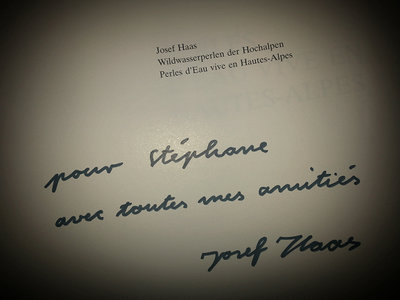 Josef Haas
Wildwasserperlen der Hochalpen
Perles d'Eau vive en Hautes-Alpes
pour Stéphane
avec toutes mes amitiés
Josef Haas